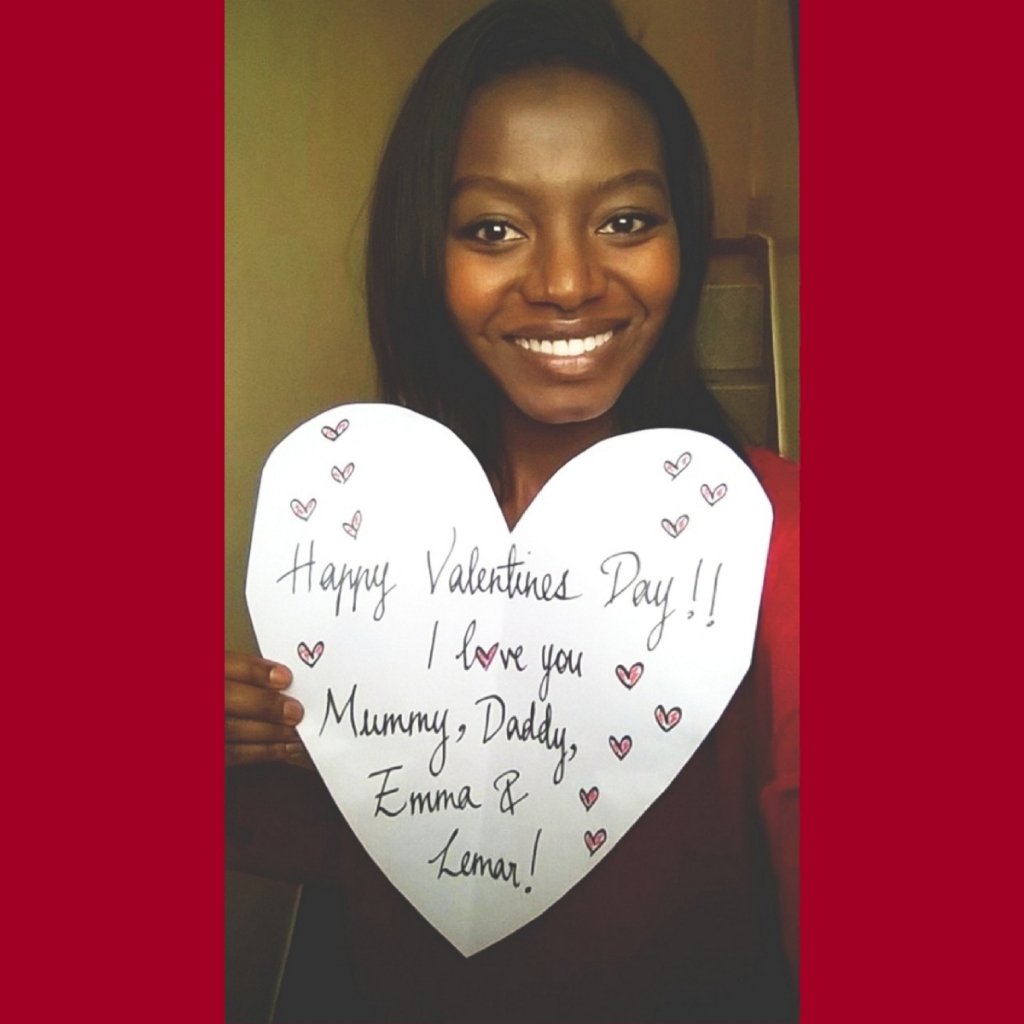 Happy Valentines Day!!
I love you
Mummy, Daddy,
Emma &
Lemar!